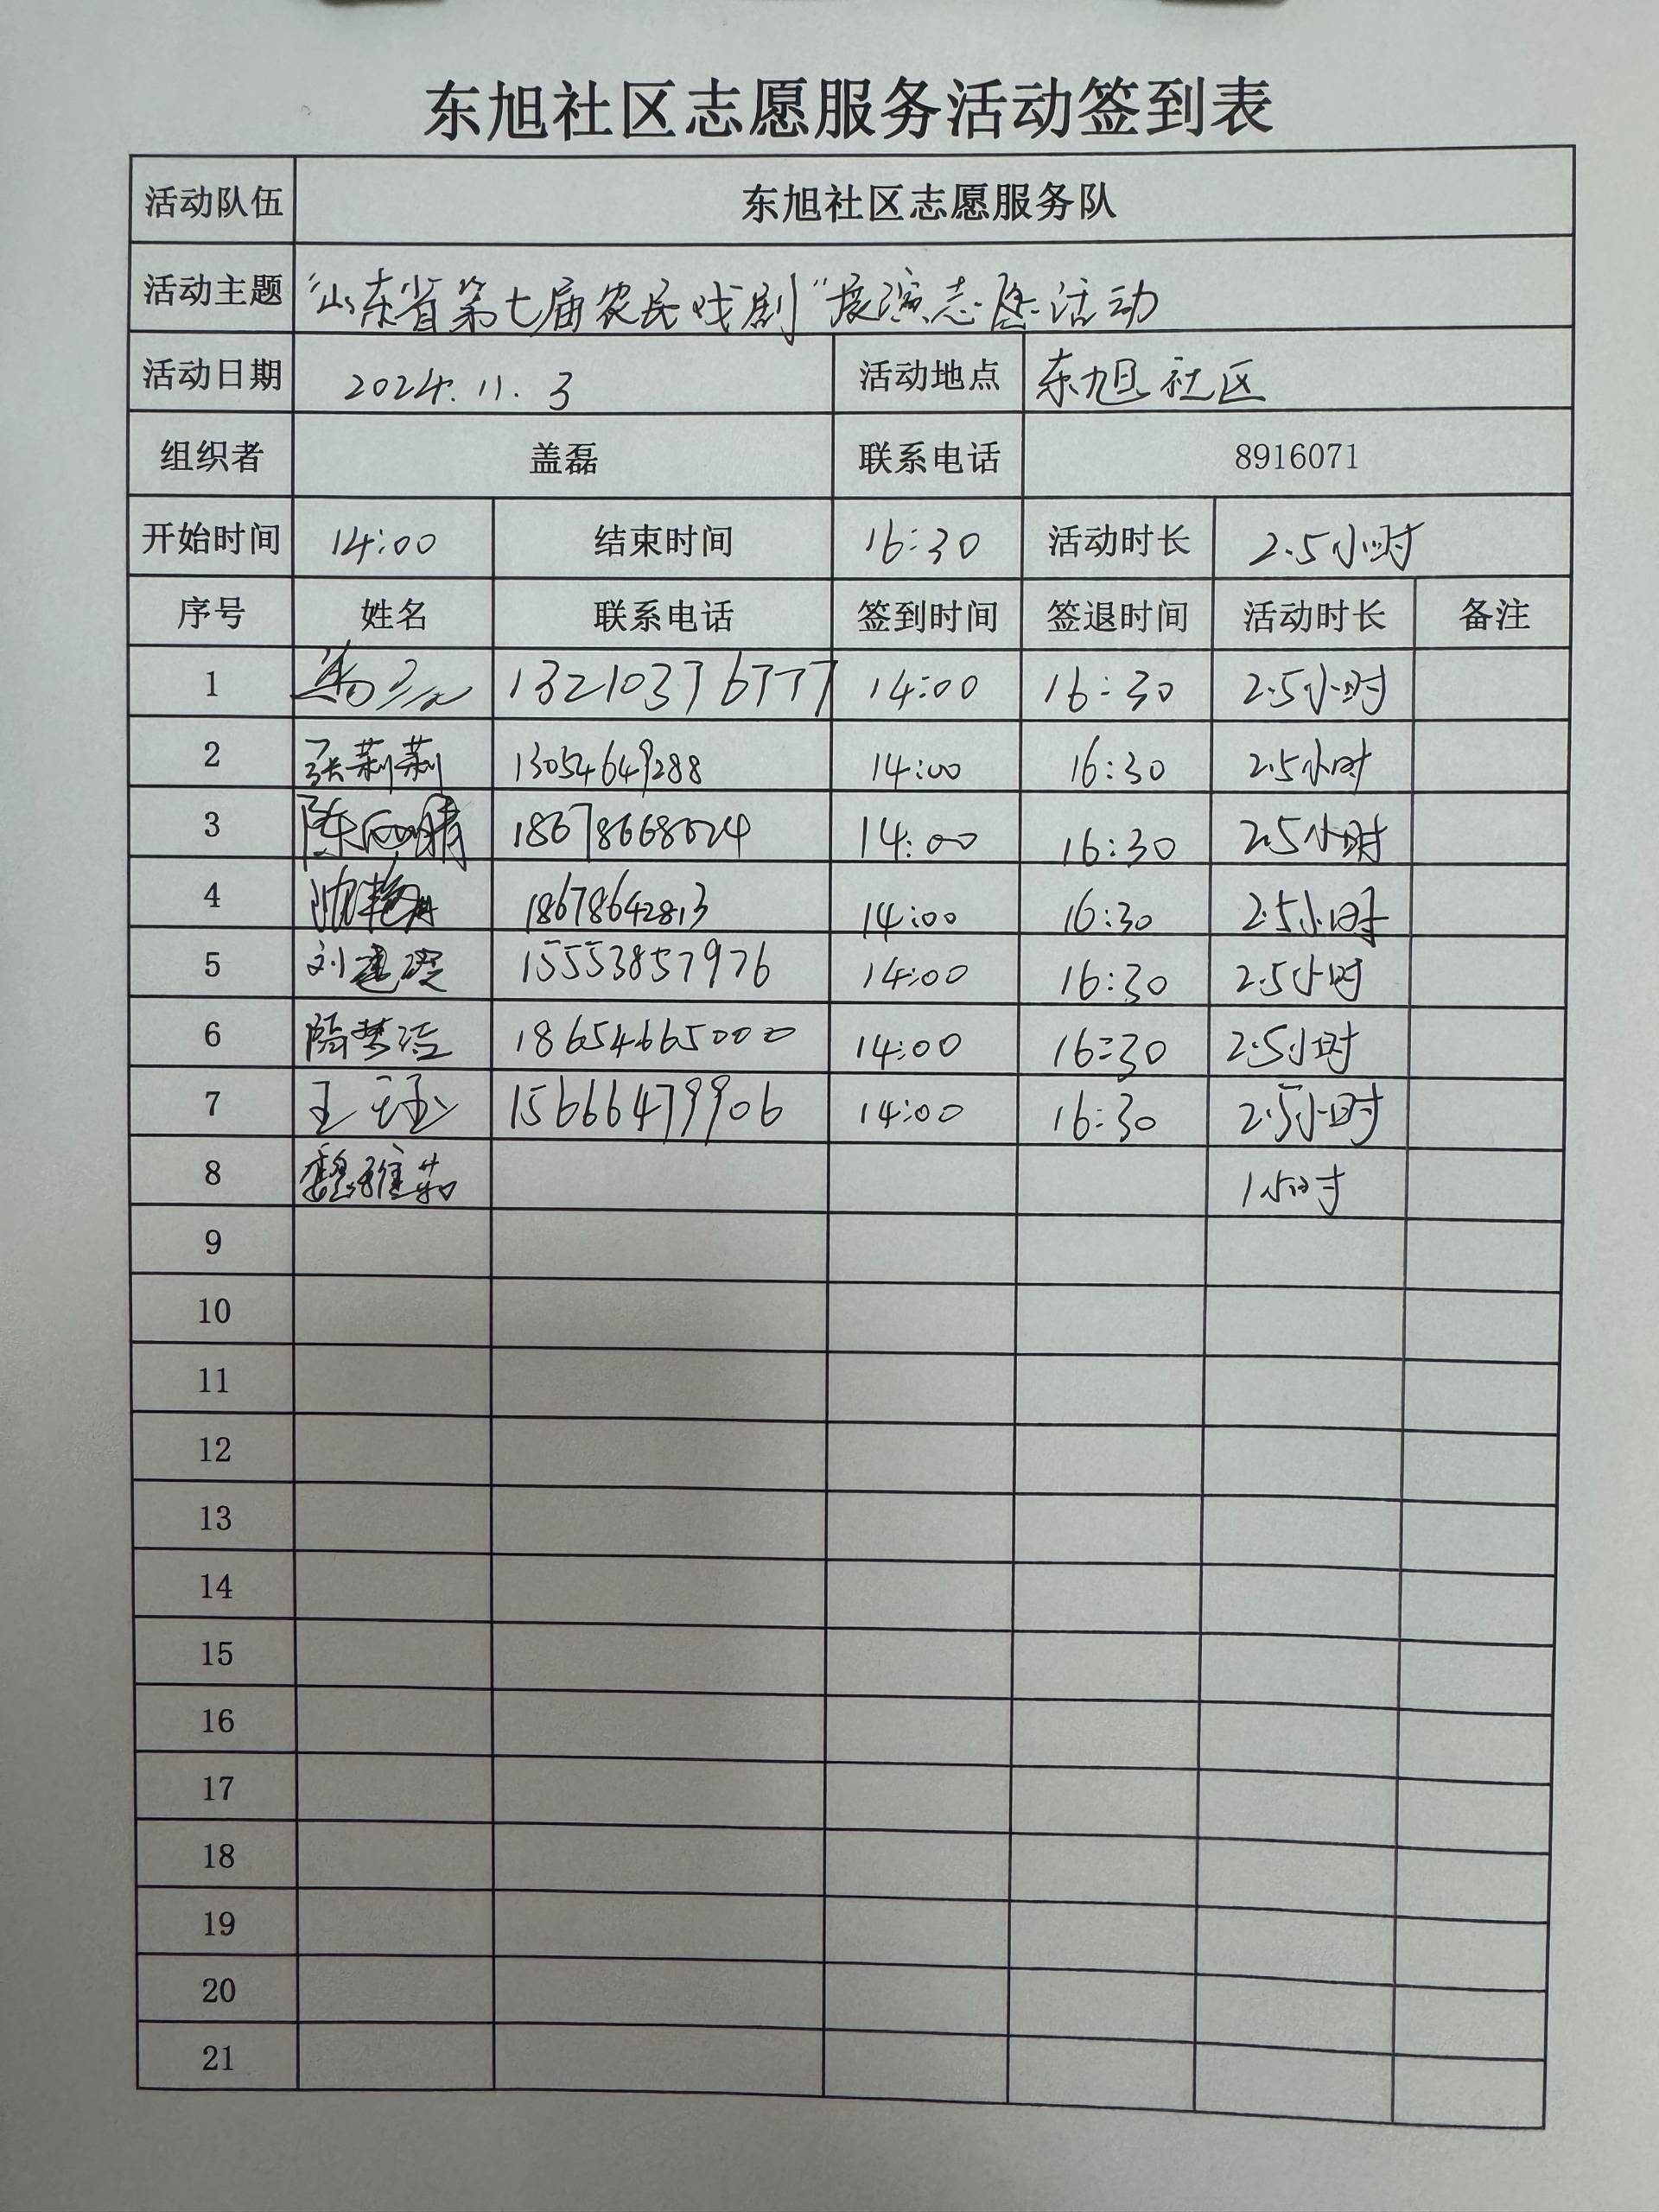 东旭社区志愿服务活动签到表
活动队伍 东旭社区志愿服务队
活动主题 "山东省第七届农民戏剧"展演志愿活动
活动日期 2024.11.3 活动地点 东旭社区
组织者 盖磊 联系电话 8916071
开始时间 14:00 结束时间 16:30 活动时长 2.5小时
序号 姓名 联系电话 签到时间 签退时间 活动时长 备注
1 13210376777 14:00 16:30 2.5小时
2 张莉莉 13054649288 14:00 16:30 2.5小时
3 陈雨晴 18678668024 14:00 16:30 2.5小时
4 18678642813 14:00 16:30 2.5小时
5 刘建 15553857976 14:00 16:30 2.5小时
6 隋梦洁 18654665000 14:00 16:30 2.5小时
7 王珏 15666479906 14:00 16:30 2.5小时
8 魏雅茹 1小时
9
10
11
12
13
14
15
16
17
18
19
20
21